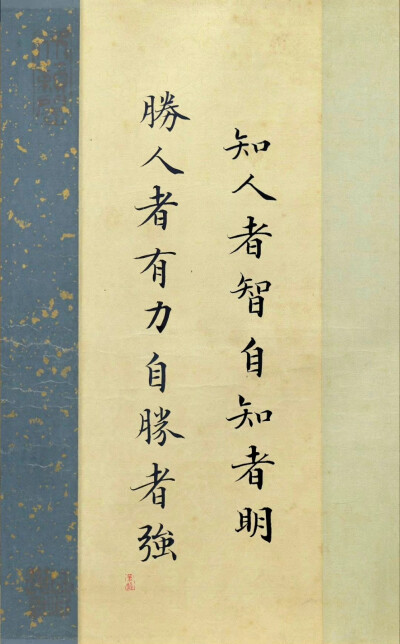 知人者智自知者明
勝人者有力自勝者強